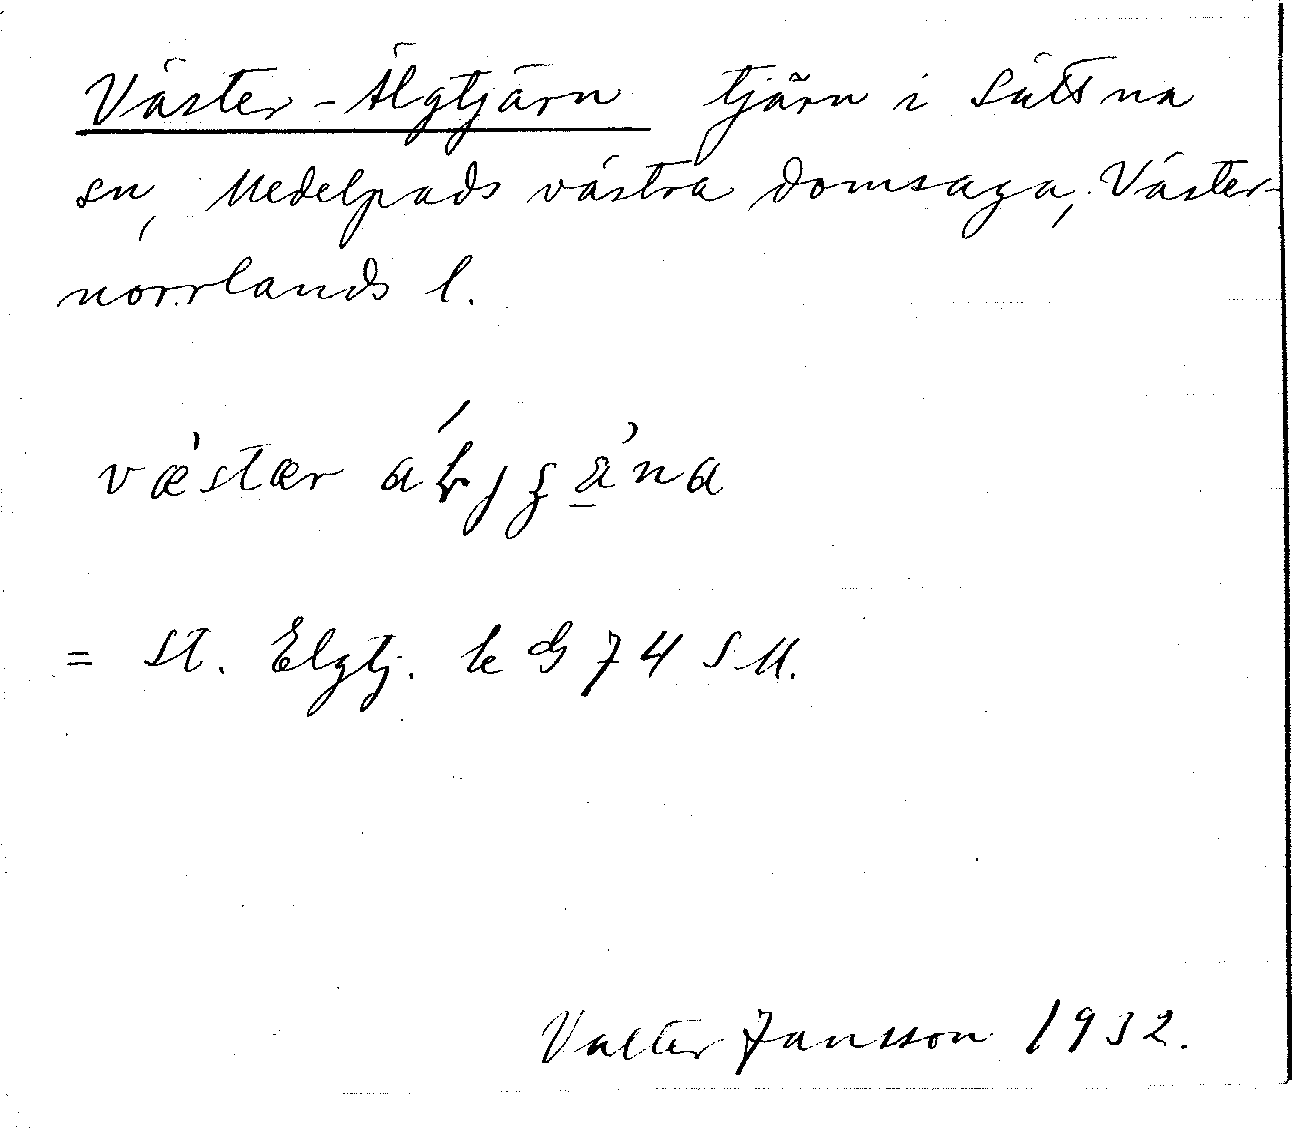 Väster-Älgtjärn tjärn i Sättna
sn, Medelpads västra domsaga, Väster-
norrlands l.
væ̀stær
= St. Elgtj. k G 74 SM.
Valter Jansson 1932.